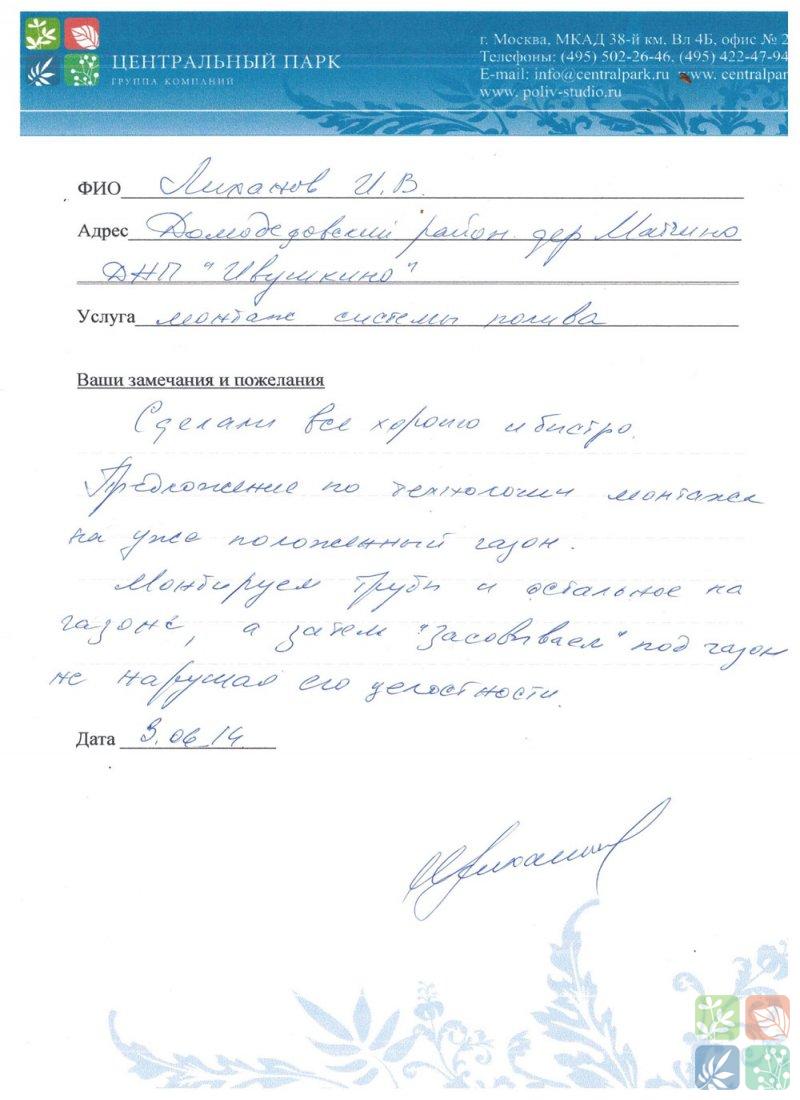 ЦЕНТРАЛЬНЫЙ ПАРК
ГРУППА КОМПАНИЙ
г. Москва, МКАД 38-й км. Вл 4Б, офис № 2
Телефоны: (495) 502-26-46, (495) 422-47-94
E-mail: info@centralpark.ru www. centralpar
www. poliv-studio.ru
ФИО Лиханов И.В.
Адрес Домодедовский район дер Матчино
ДНП "Ивушкино"
Услуга монтаж системы полива
Ваши замечания и пожелания
Сделали все хорошо и быстро.
Предложение по технологии монтажа
на уже положенный газон.
Монтируем трубы и остальное на
газоне, а затем "засовываем" под газон
не нарушая его целостности.
Дата 9.06.14